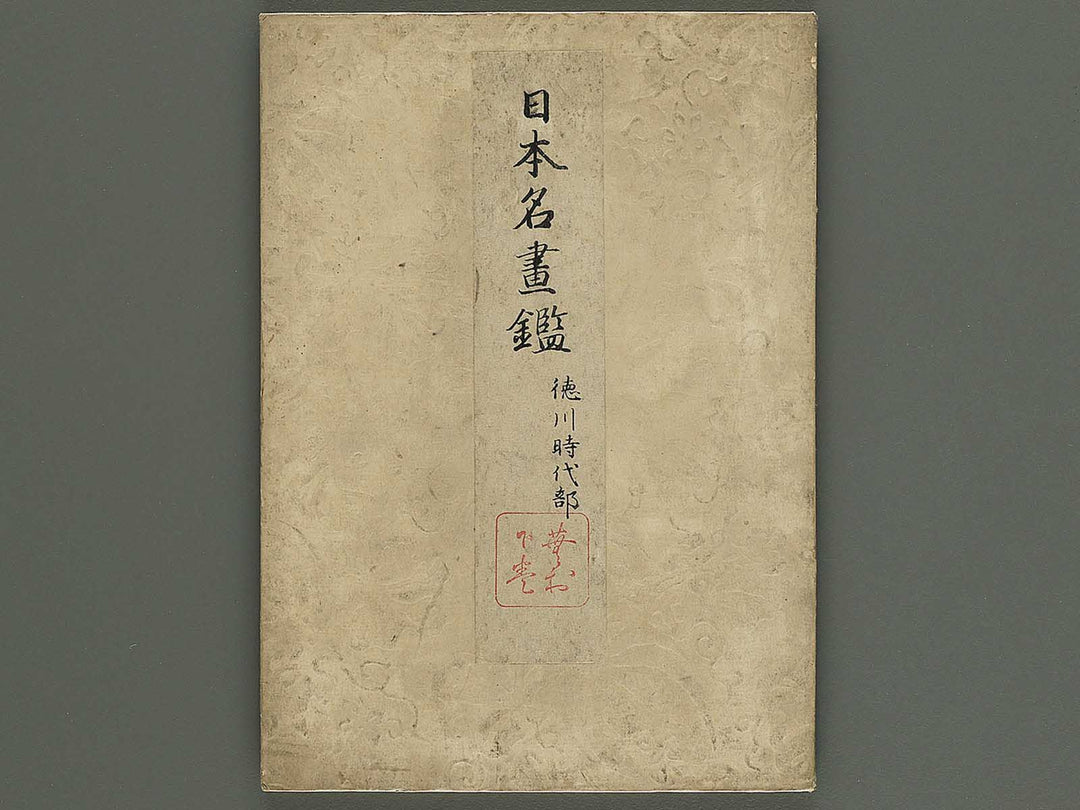 日本名畫鑑
徳川時代部
下卷